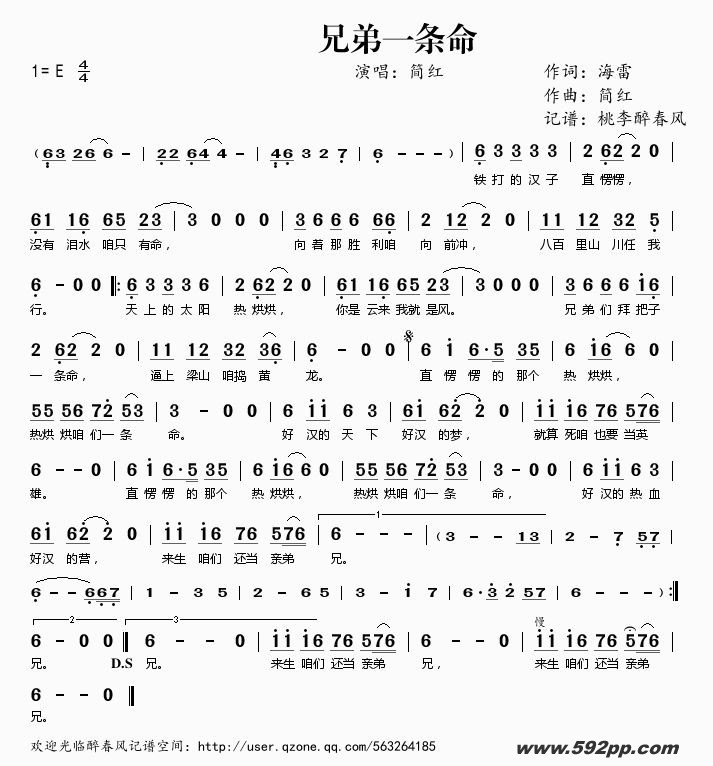 兄弟一条命
1= E 4/4 演唱：简红 作词：海雷
作曲：简红
记谱：桃李醉春风
(63 26 6 - | 22 64 4 - | 46 3 2 7 | 6 - - -) | 6 3 3 3 3 | 2 62 2 0 |
铁 打 的 汉 子 直 愣愣，
61 16 65 23 | 3 0 0 0 | 3 6 6 6 66 | 2 12 2 0 | 11 12 32 5 |
没有 泪水 咱只 有命， 向 着 那 胜 利咱 向 前冲， 八百 里山 川任 我
6 - 0 0 |: 6 3 3 3 6 | 2 62 2 0 | 61 16 65 23 | 3 0 0 0 | 3 6 6 6 16 |
行。 天 上 的 太 阳 热 烘烘， 你是 云来 我就 是风。 兄 弟 们 拜 把子
2 62 2 0 | 11 12 32 36 | 6 - 0 0 | 6 1 6·5 35 | 6 16 6 0 |
一 条命， 逼上 梁山 咱捣 黄 龙。 直 愣 愣 的 那个 热 烘烘，
55 56 72 53 | 3 - 0 0 | 6 11 6 3 | 61 62 2 0 | 11 16 76 576 |
热烘 烘咱 们一 条 命。 好 汉的 天 下 好汉 的梦， 就算 死咱 也要 当英
6 - - 0 | 6 1 6·5 35 | 6 16 6 0 | 55 56 72 53 | 3 - 0 0 | 6 11 6 3 |
雄。 直 愣 愣 的 那个 热 烘烘， 热烘 烘咱 们一 条 命， 好 汉的 热 血
61 62 2 0 | 11 16 76 576 | 1 6 - - - | (3 - - 13 | 2 - 7 57 |
好汉 的营， 来生 咱们 还当 亲弟 兄。
6 - - 667 | 1 - 3 5 | 2 - 6 5 | 3 - - 1 | 7 - 5 7 | 6·3 2 57 | 6 - - -) :|
2 3
6 - 0 0 | 6 - - 0 | 11 16 76 576 | 6 - - 0 | 慢 11 16 76 576 |
兄。 D.S 兄。 来生 咱们 还当 亲弟 兄， 来生 咱们 还当 亲弟
6 - - 0 |
兄。
欢迎光临醉春风记谱空间：http://user.qzone.qq.com/563264185
www.592pp.com